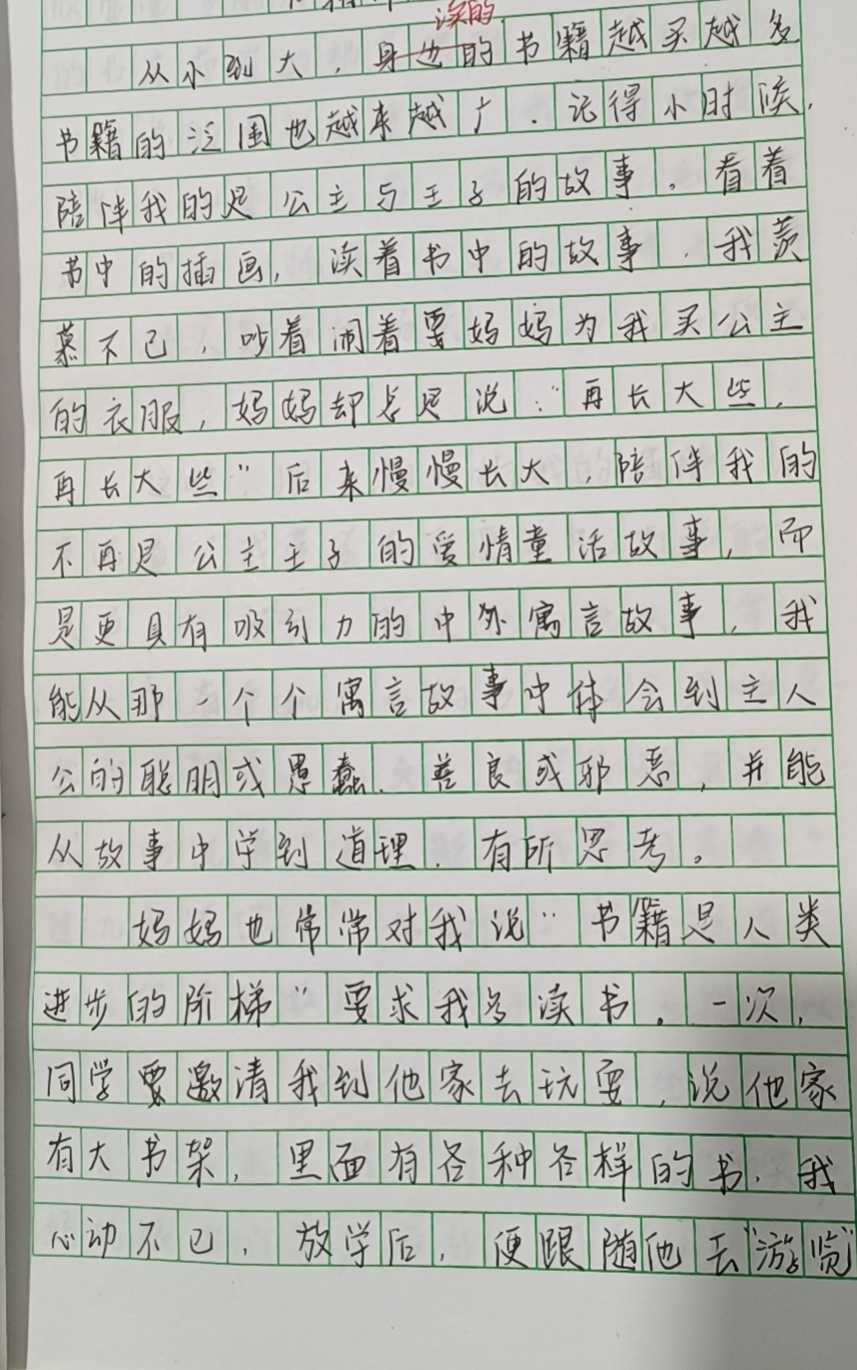 读的
从小到大，身边的书籍越买越多
书籍的泛围也越来越广．记得小时候，
陪伴我的是公主与王子的故事。看着
书中的插画，读着书中的故事．我羡
慕不已，吵着闹着要妈妈为我买公主
的衣服，妈妈却总是说：“再长大些，
再长大些”后来慢慢长大，陪伴我的
不再是公主王子的爱情童话故事，而
是更具有吸引力的中外寓言故事，我
能从那一个个寓言故事中体会到主人
公的聪明或愚蠢．善良或邪恶，并能
从故事中学到道理．有所思考。
妈妈也常常对我说“书籍是人类
进步的阶梯”要求我多读书。一次，
同学要邀清我到他家去玩耍，说他家
有大书架，里面有各种各样的书．我
心动不已．放学后，便跟随他去“游览”